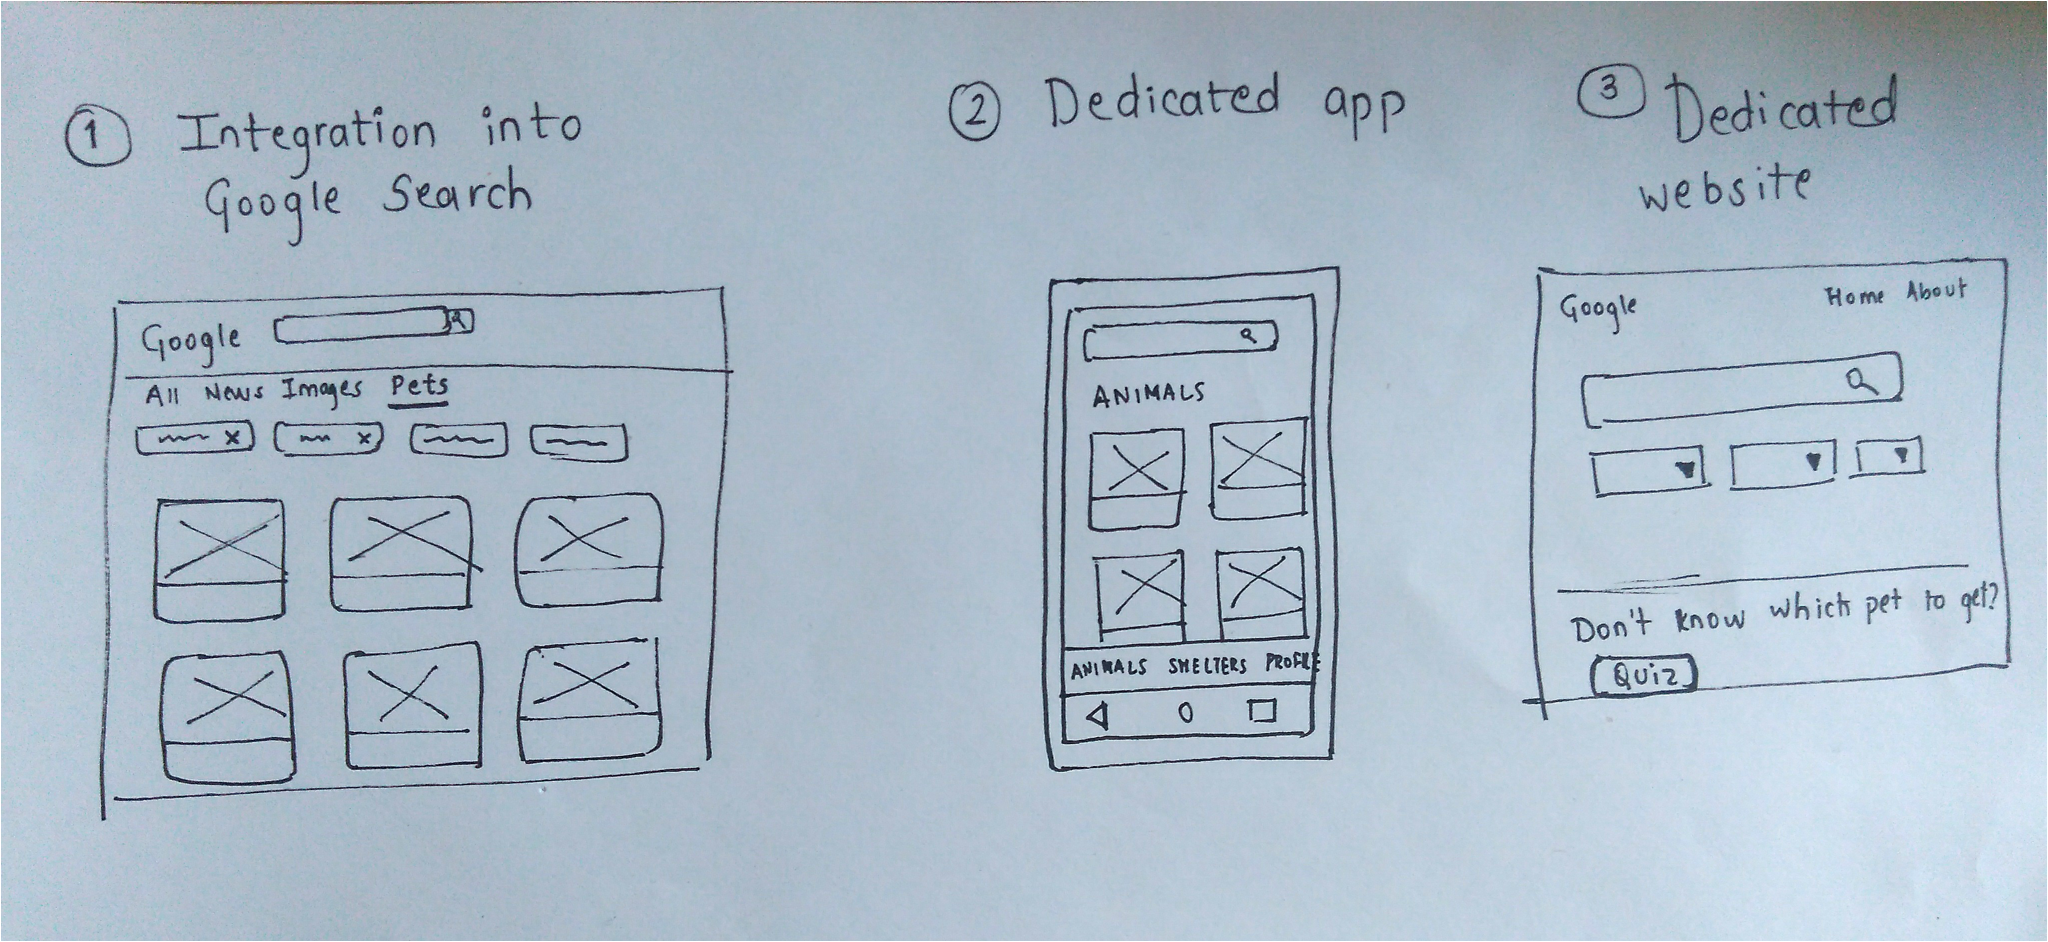 1 Integration into
Google Search
Google
All News Images Pets
2 Dedicated app
ANIMALS
ANIMALS SHELTERS PROFILE
3 Dedicated
website
Google Home About
Don't know which pet to get?
Quiz